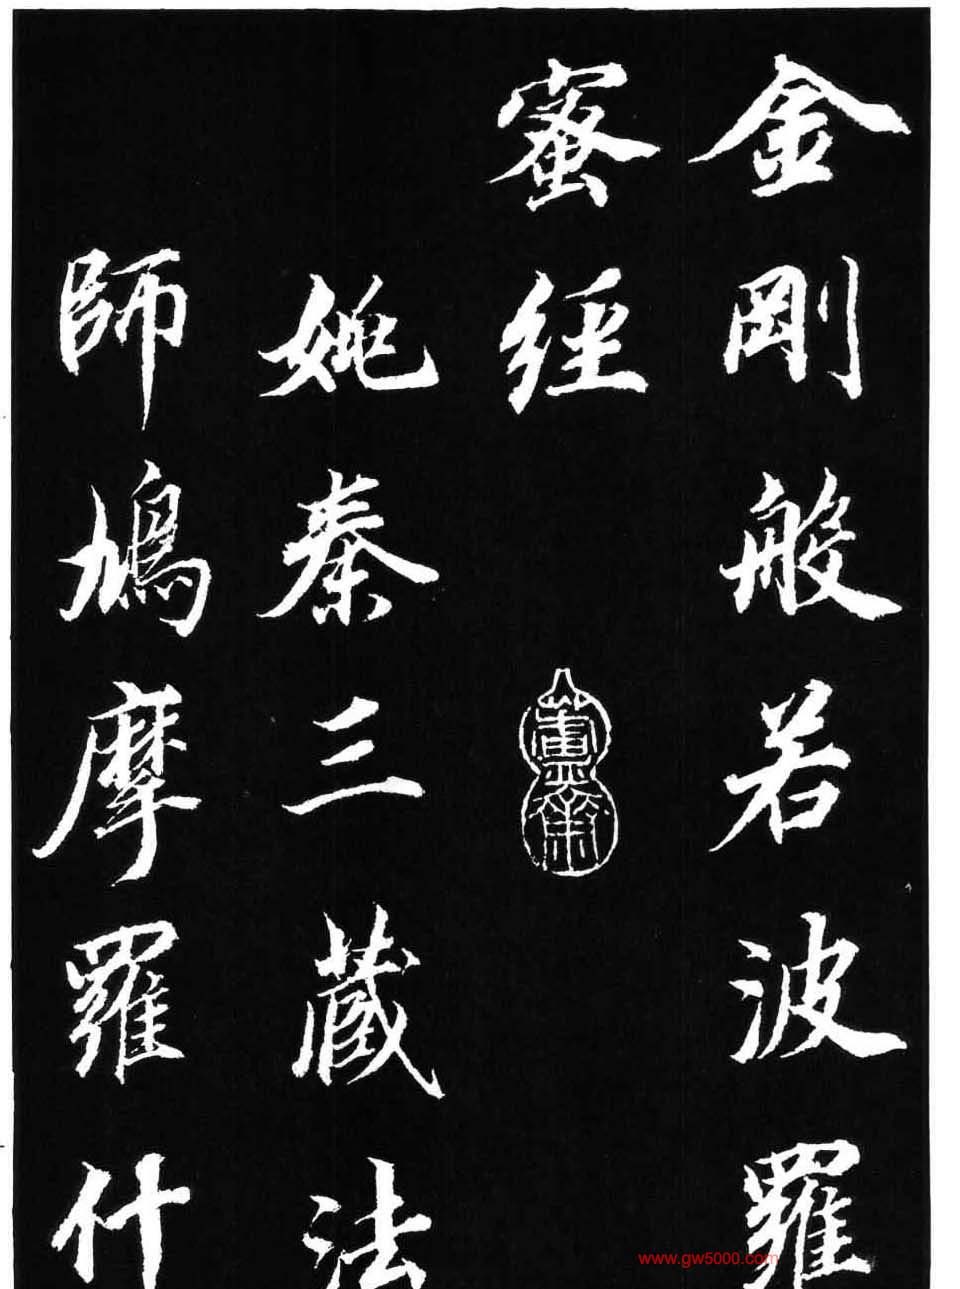 金剛般若波羅
蜜經
姚秦三藏法
師鳩摩羅什
www.gw5000.com